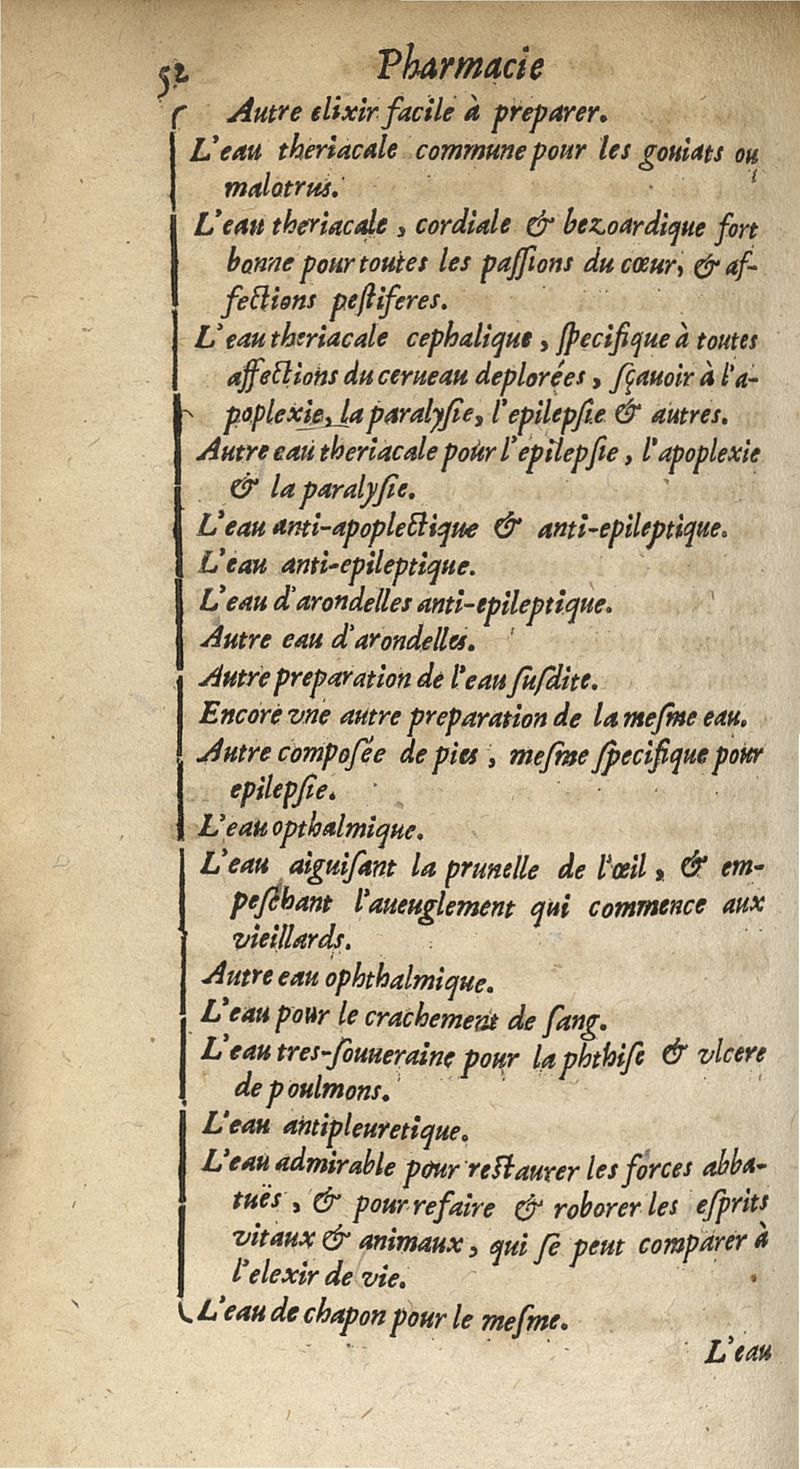 52 Pharmacie
Autre elixir facile à preparer.
L'eau theriacale commune pour les gouiats ou
malotrus.
L'eau theriacale, cordiale & bezoardique fort
bonne pour toutes les paſſions du cœur, & af-
fections peſtiferes.
L'eau theriacale cephalique, ſpecifique à toutes
affections du cerueau deplorées, ſçauoir à l'a-
poplexie, la paralyſie, l'epilepſie & autres.
Autre eau theriacale pour l'epilepſie, l'apoplexie
& la paralyſie.
L'eau anti-apoplectique & anti-epileptique.
L'eau anti-epileptique.
L'eau d'arondelles anti-epileptique.
Autre eau d'arondelles.
Autre preparation de l'eau ſuſdite.
Encore vne autre preparation de la meſme eau.
Autre compoſée de pies, meſme ſpecifique pour
epilepſie.
L'eau opthalmique.
L'eau aiguiſant la prunelle de l'œil, & em-
peſchant l'aueuglement qui commence aux
vieillards.
Autre eau ophthalmique.
L'eau pour le crachement de ſang.
L'eau tres-ſouueraine pour la phthiſe & vlcere
de poulmons.
L'eau antipleuretique.
L'eau admirable pour reſtaurer les forces abba-
tuës, & pour refaire & roborer les eſprits
vitaux & animaux, qui ſe peut comparer à
l'elexir de vie.
L'eau de chapon pour le meſme.
L'eau